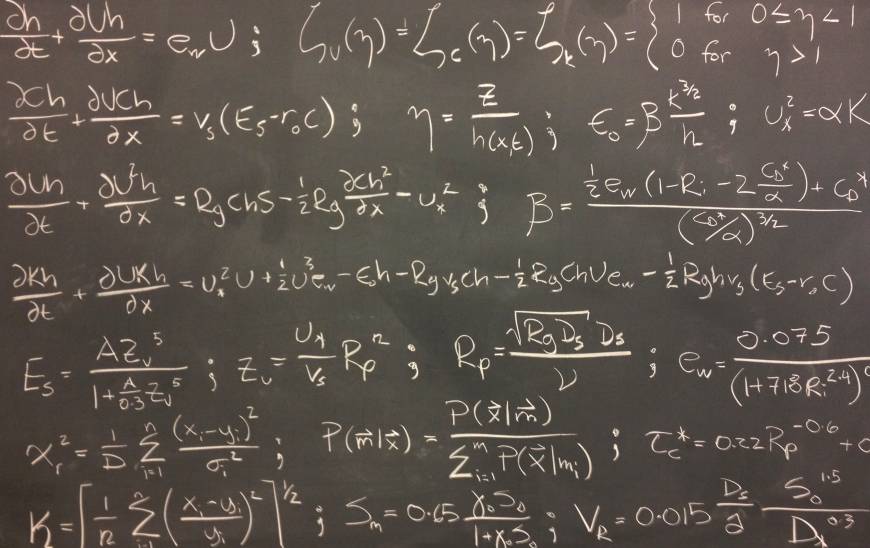 ∂h/∂t + ∂Uh/∂x = e_w U ; ζ_U(η) = ζ_c(η) = ζ_k(η) = { 1 for 0 ≤ η < 1
0 for η > 1
∂Ch/∂t + ∂UCh/∂x = v_s(E_s - r_o C) ; η = z/h(x,t) ; ε_o = β K^{3/2}/h ; u_*^2 = αK
∂Uh/∂t + ∂U^2h/∂x = RgChS - 1/2 Rg ∂Ch^2/∂x - u_*^2 ; β = (1/2 e_w (1 - Ri - 2 C_D^*/α) + C_D^*)/(C_D^*/α)^{3/2}
∂Kh/∂t + ∂UKh/∂x = u_*^2 U + 1/2 U^3 e_w - ε_o h - Rg v_s Ch - 1/2 RgChU e_w - 1/2 Rgh v_s (E_s - r_o C)
E_s = A Z_u^5/(1 + A/0.3 Z_u^5) ; Z_u = u_*/v_s R_p^n ; R_p = √(RgD_s) D_s/ν ; e_w = 0.075/(1 + 718 Ri^{2.4})^0
χ_r^2 = 1/D Σ_{i=1}^n (x_i - y_i)^2/σ_i^2 ; P(m⃗|x⃗) = P(x⃗|m⃗)/Σ_{i=1}^m P(x⃗|m_i) ; τ_c^* = 0.22 R_p^{-0.6} + 0
K = [1/n Σ_{i=1}^n ((x_i - y_i)/y_i)^2]^{1/2} ; S_m = 0.65 γ_o S_o/(1 + γ_o S_o) ; V_R = 0.015 D_s/∂ S_o^{1.5}/D_x^{0.3}